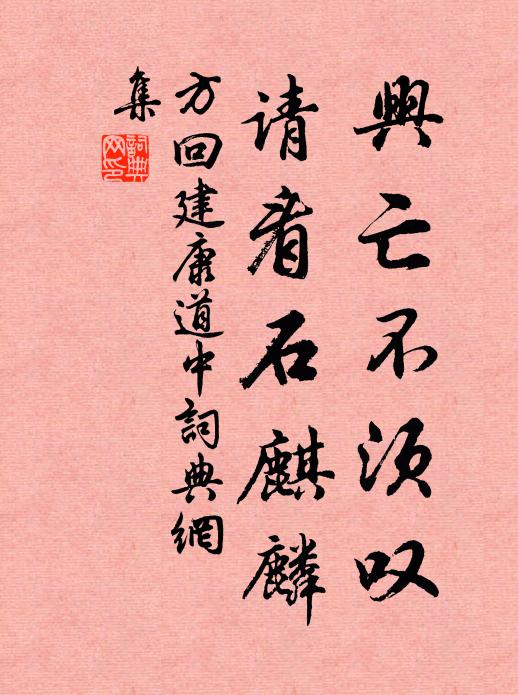 興亡不须叹
请看石麒麟
方回建康道中詞典網
集
詞典网印